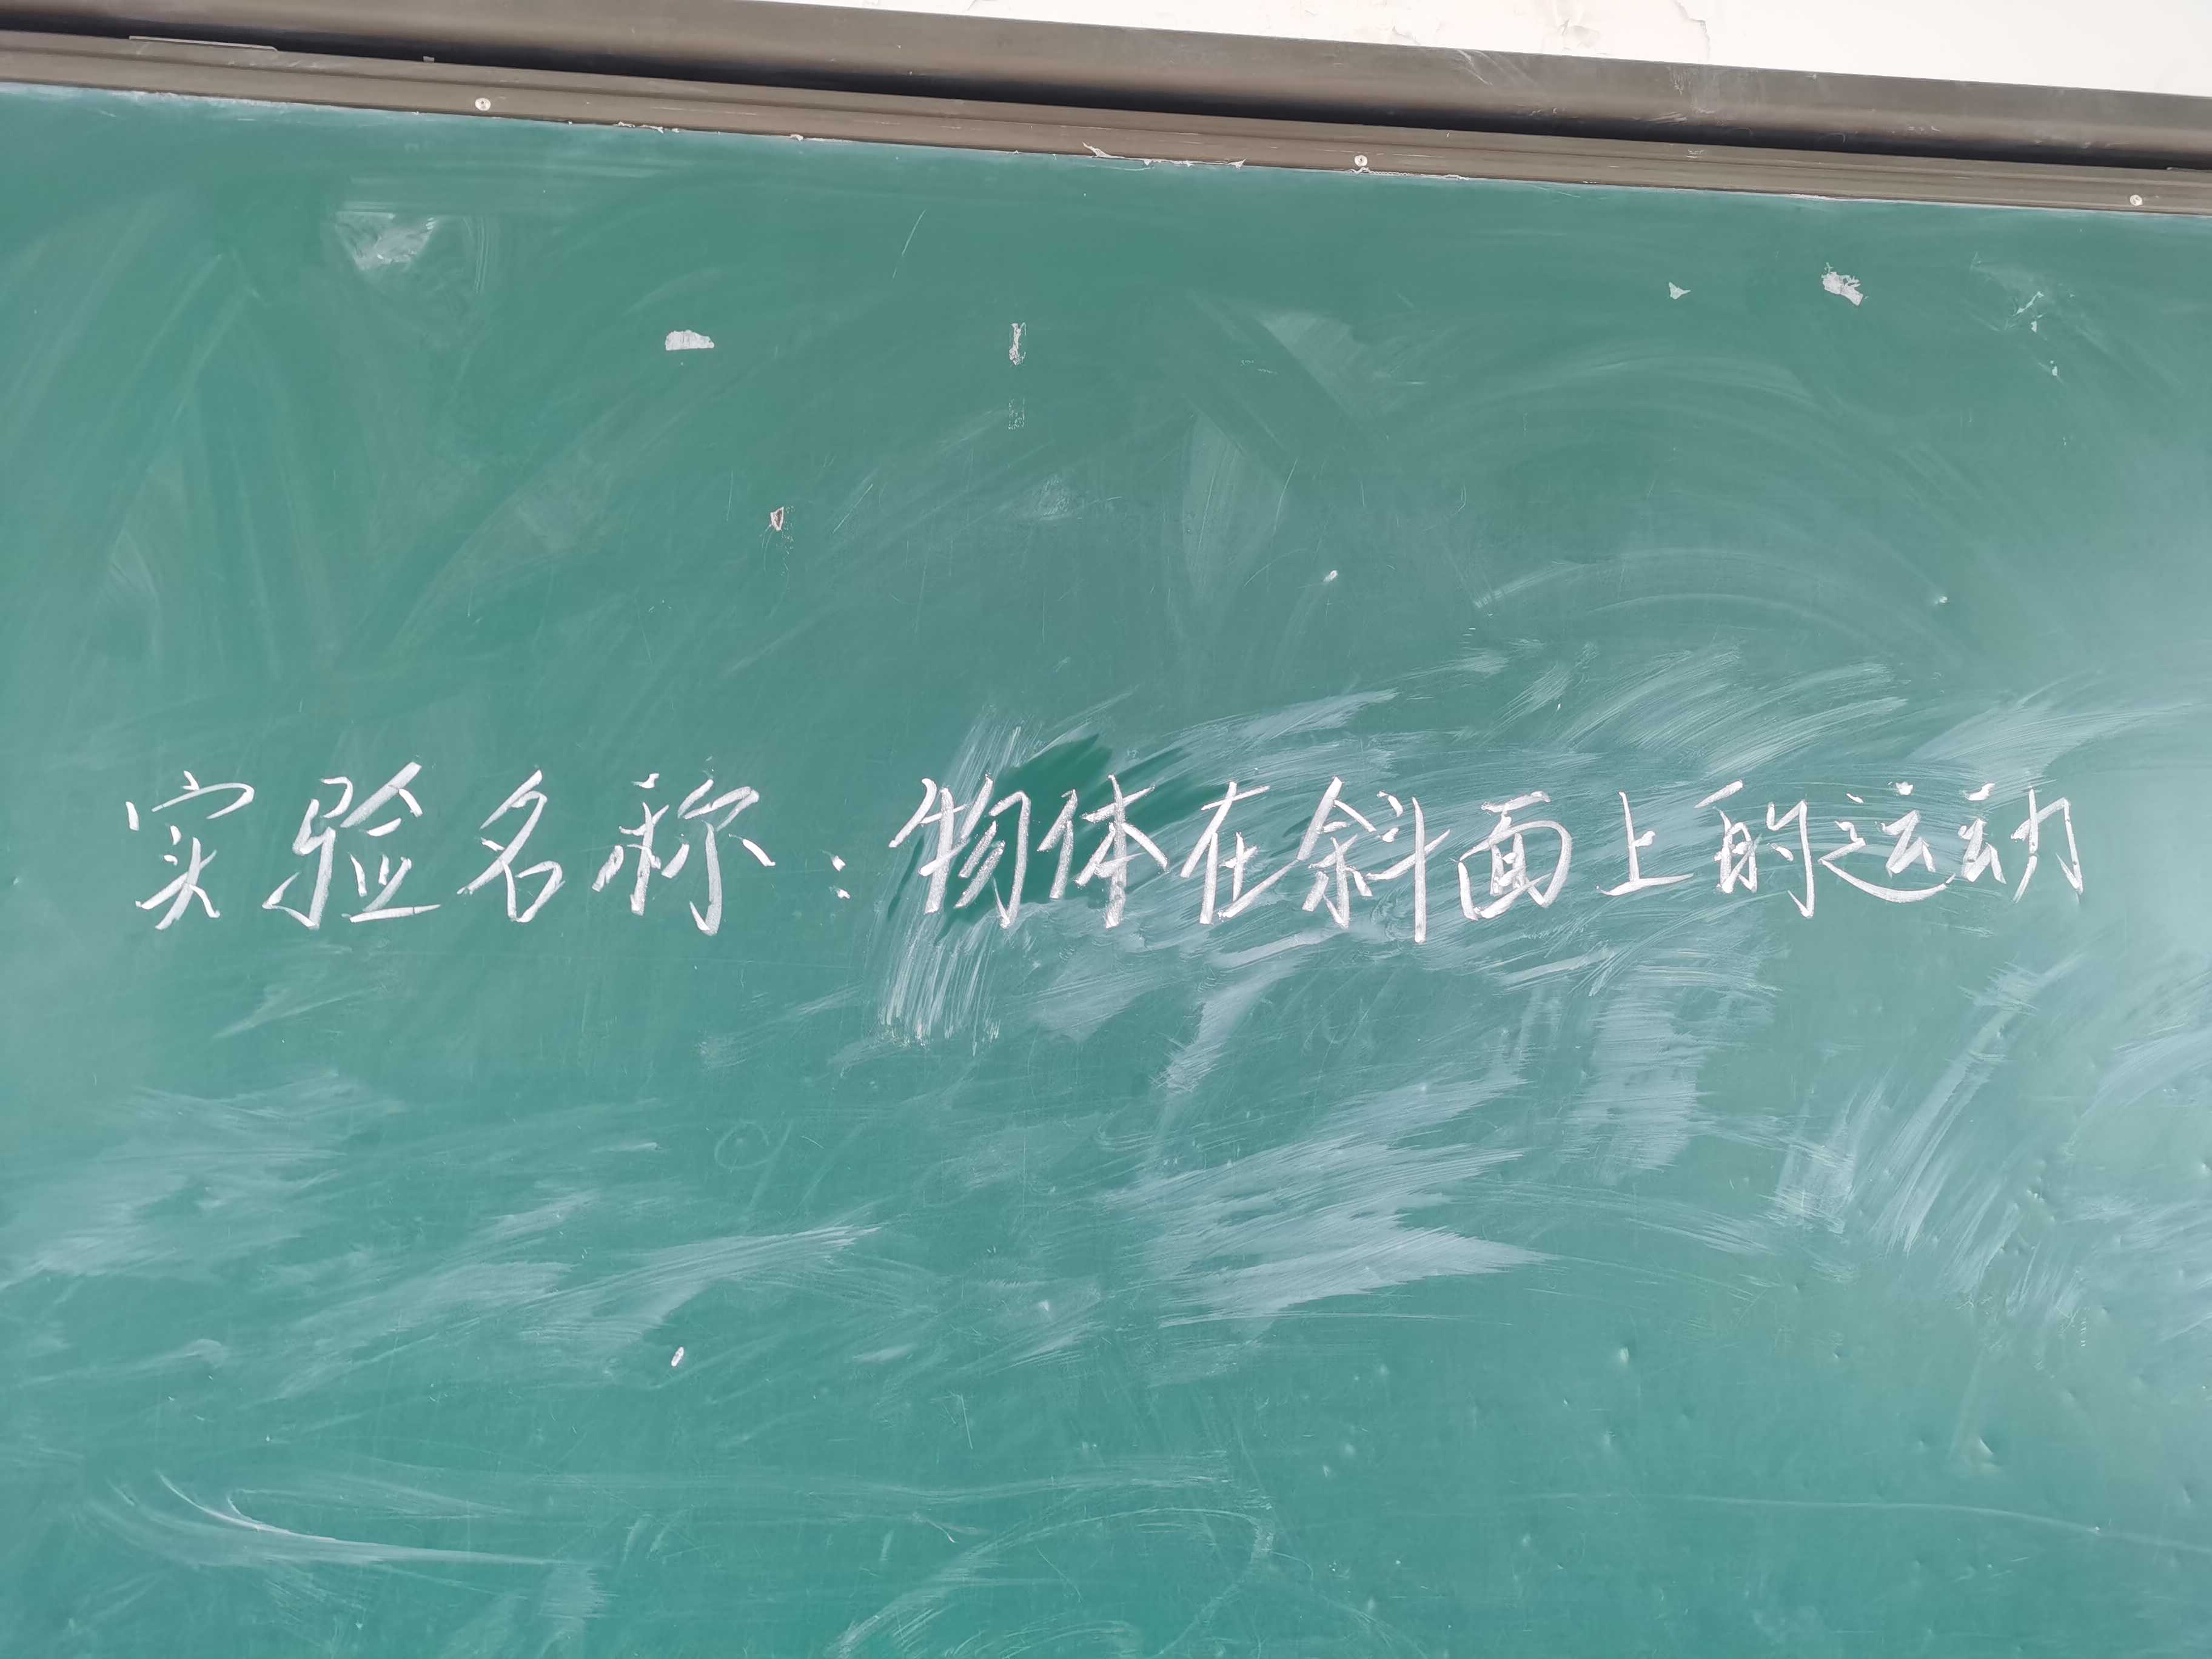 实验名称：物体在斜面上的运动